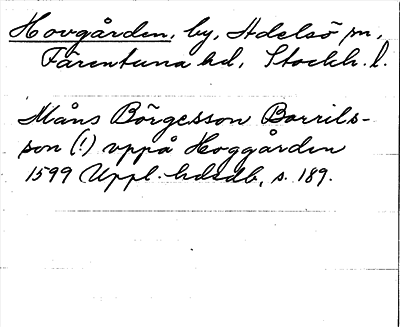 Hovgården, by, Adelsö sn,
Färentuna hd, Stockh. l.
Måns Börgesson Borrils-
son (!) uppå Hoggården
1599 Uppl. hdsdb, s. 189.